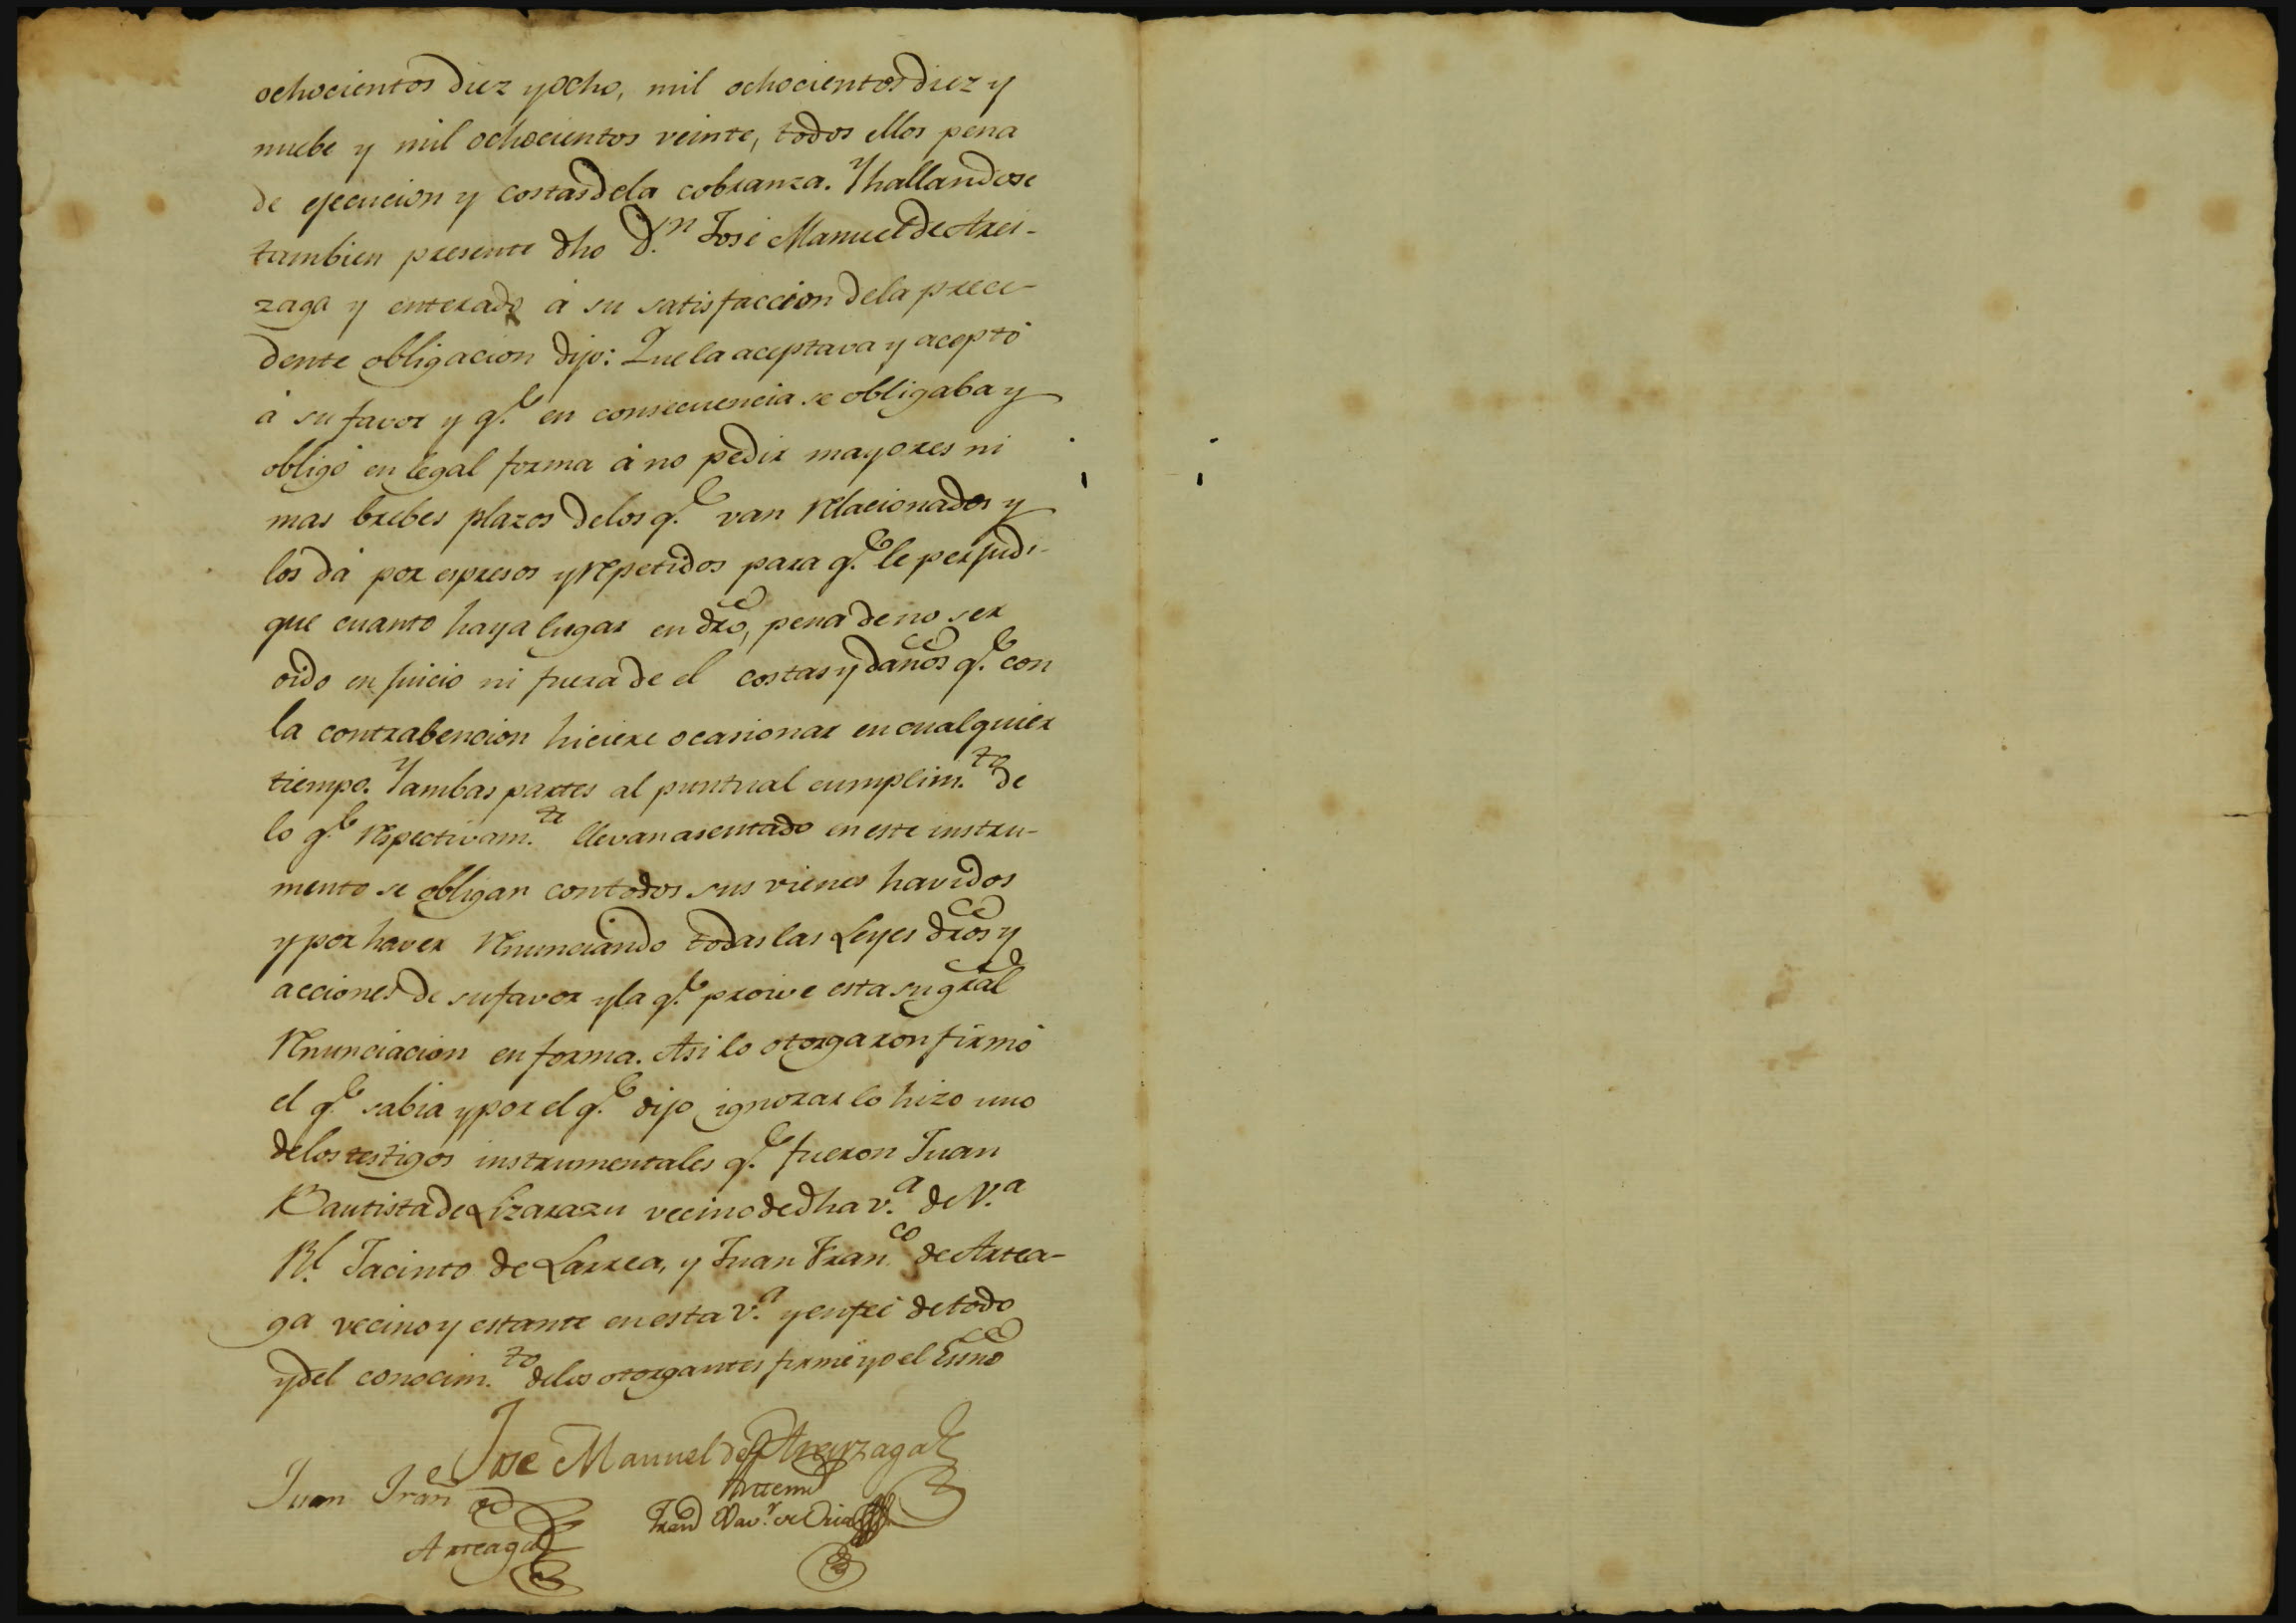 ochocientos diez y ocho, mil ochocientos diez y
nuebe y mil ochocientos veinte, todos ellos pena
de ejecucion y costas dela cobranza. Y hallandose
tambien presente dho D.n José Manuel de Arei-
zaga y enterado á su satisfaccion dela prece-
dente obligacion dijo: Que la aceptava y aceptó
á su favor y q.e en consecuencia se obligaba y
obligó en legal forma á no pedir mayores ni
mas brebes plazos delos q.e van relacionados y
los dá por espresos y repetidos para q.e le perjudi-
que cuanto haya lugar en dro, pena de no ser
oido en juicio ni fuera de el costas y daños q.e con
la contrabencion hiciere ocasionar en cualquier
tiempo. Y ambas partes al puntual cumplim.to de
lo q.e respectivam.te llevan asentado en este instru-
mento se obligan con todos sus vienes havidos
y por haver renunciando todas las Leyes dros y
acciones de su favor y la q.e proive esta su gral
renunciacion en forma. Asi lo otorgaron firmó
el q.e sabia y por el q.e dijo ignorar lo hizo uno
delos testigos instrumentales q.e fueron Juan
Bautista de Lizarazu vecino de dha v.a de V.a
R.l Jacinto de Larrea, y Juan Fran.co de Artea-
ga vecino y estante en esta v.a y en feé de todo
y del conocim.to delos otorgantes firmé yo el Essno
Jose Manuel de Areyzaga
Juan Fran.co de
Antemi
Arteaga